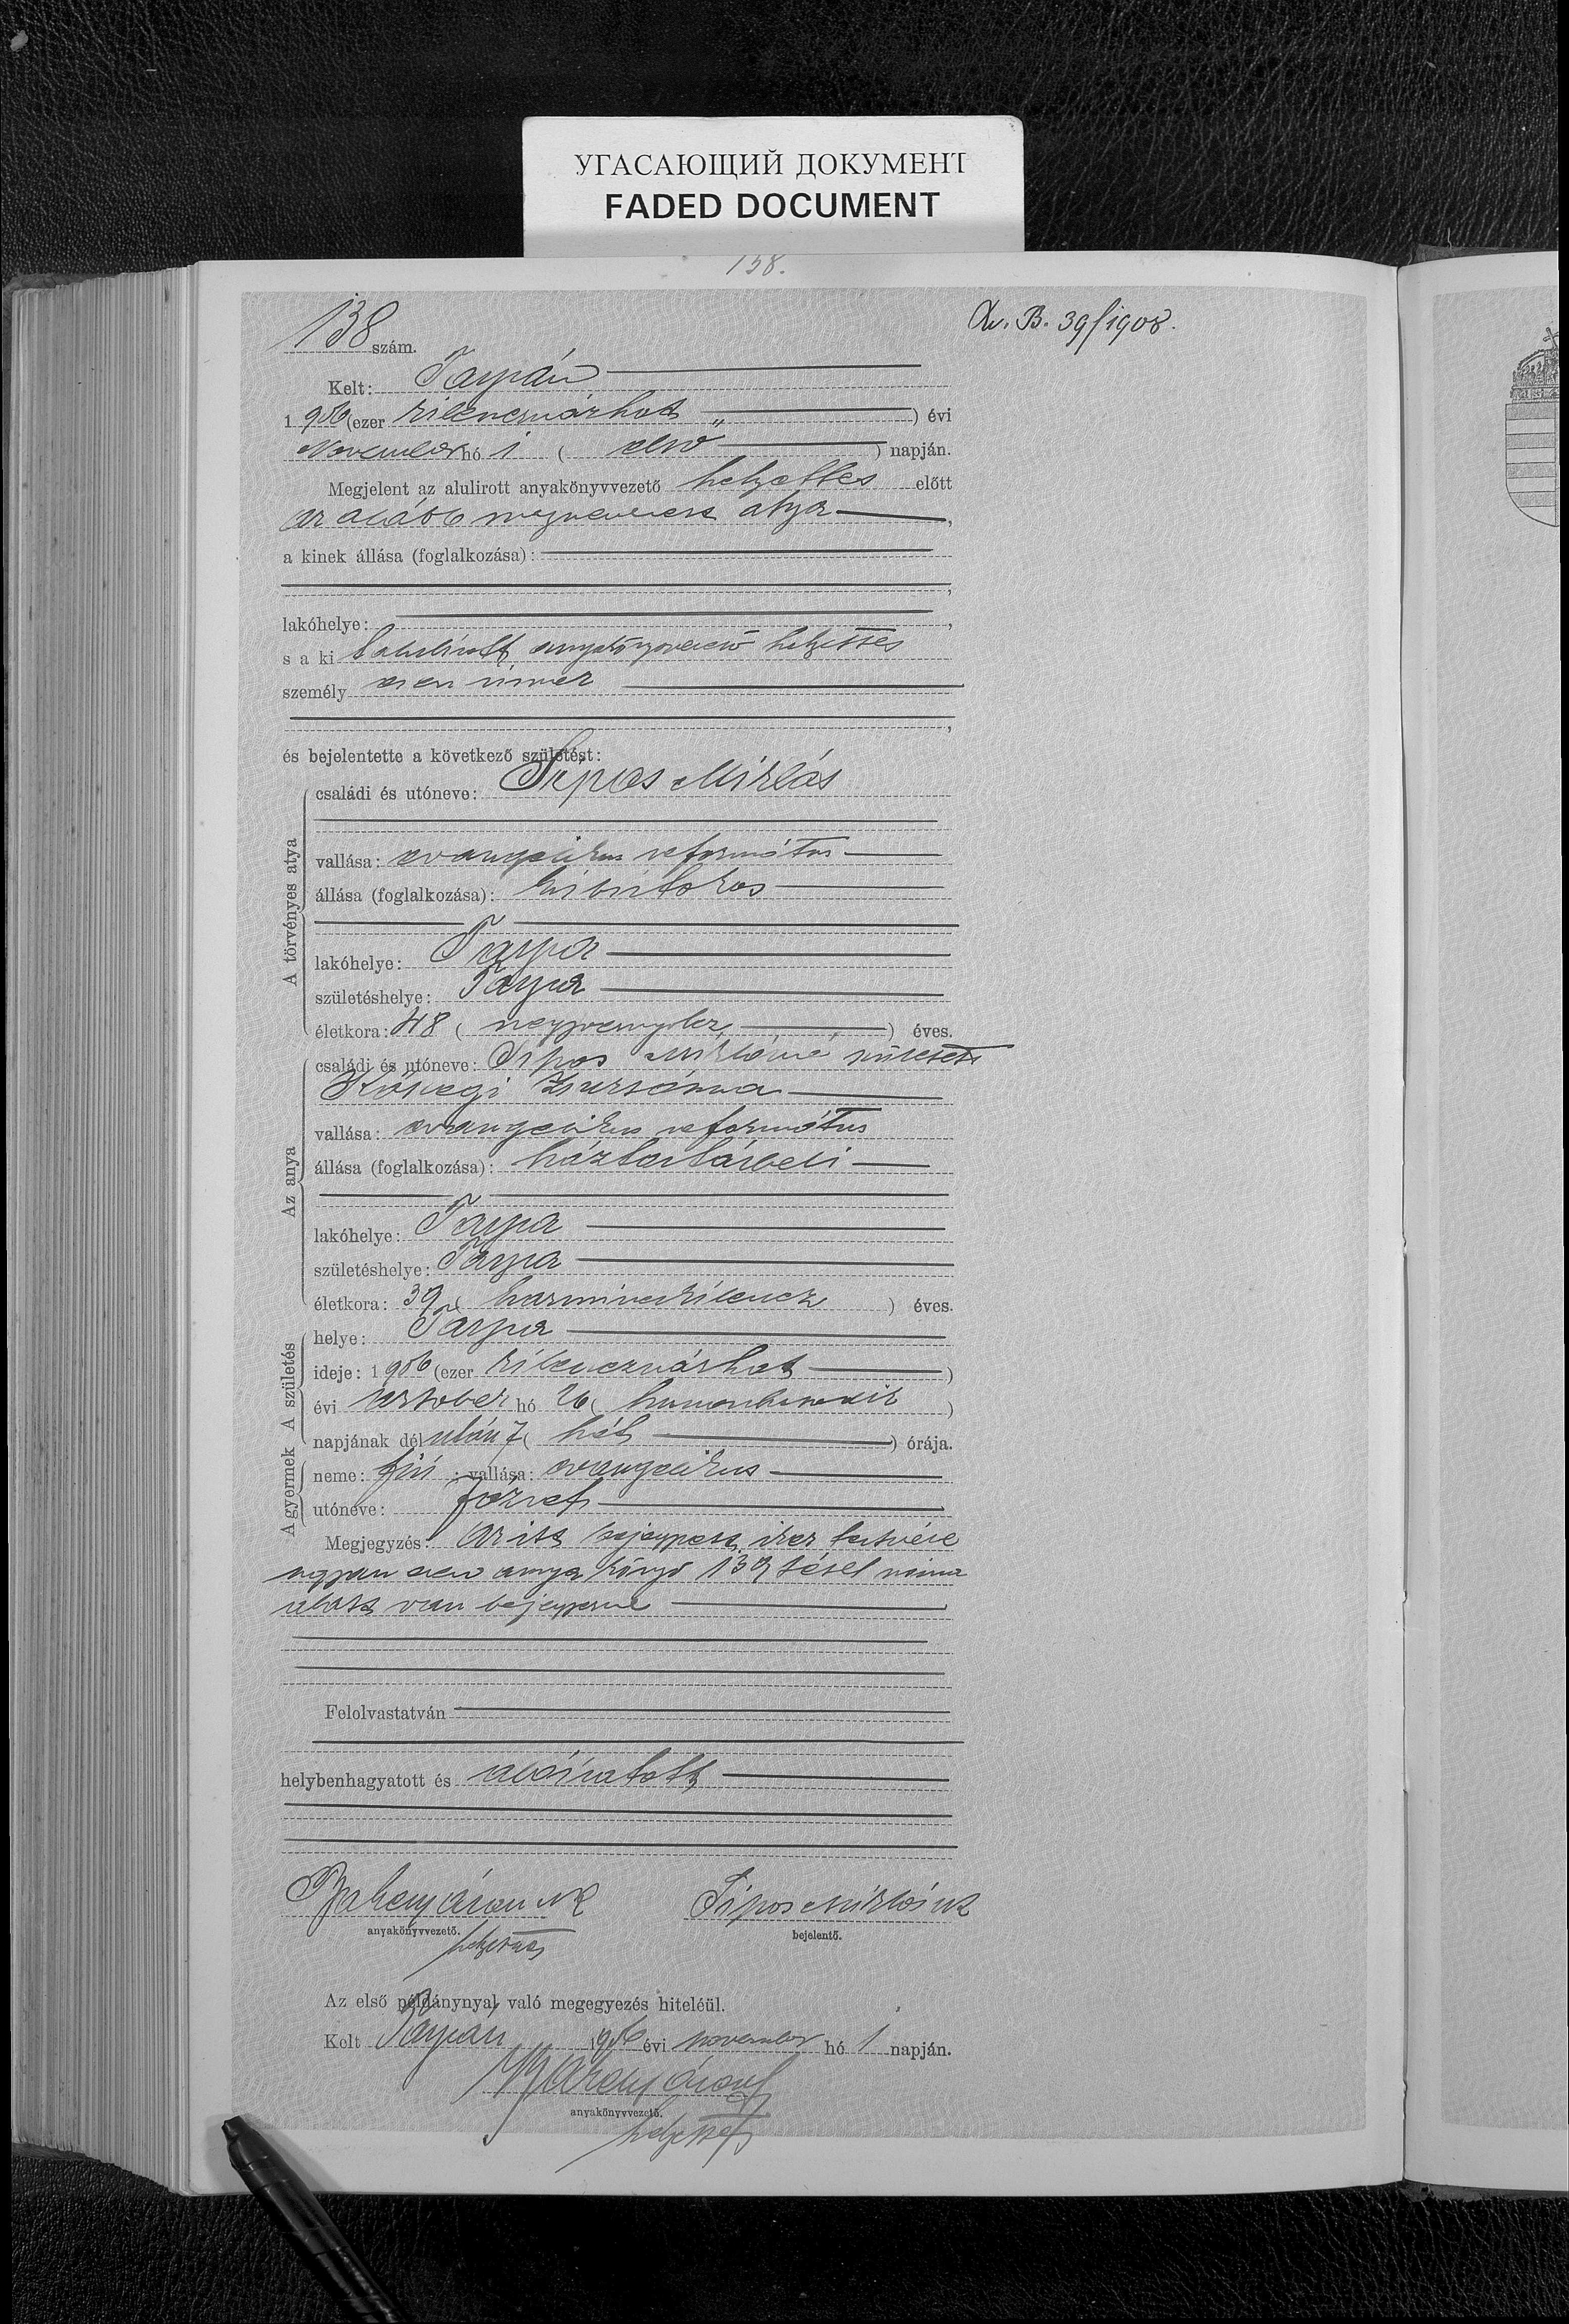 УГАСАЮЩИЙ ДОКУМЕНТ
FADED DOCUMENT
138.
138 szám.
Av. B. 39/1908.
Kelt: Tarpán
1 906 (ezer kilenczszázhat ) évi
November hó 1 ( első ) napján.
Megjelent az alulirott anyakönyvvezető helyettes előtt
az alább megnevezett atya ,
a kinek állása (foglalkozása):
,
lakóhelye: ,
s a ki alulirott anyakönyvvezető helyettes
személy esen ismer
,
és bejelentette a következő születést:
A törvényes atya
családi és utóneve: Sipos Miklós
vallása: evangelikus református
állása (foglalkozása): kisbirtokos
lakóhelye: Tarpa
születéshelye: Tarpa
életkora: 48 ( negyvennyolcz ) éves.
Az anya
családi és utóneve: Sipos Miklósné született
Kövegi Zsuzsánna
vallása: evangelikus református
állása (foglalkozása): háztartásbeli
lakóhelye: Tarpa
születéshelye: Tarpa
életkora: 39 ( harminczkilencz ) éves.
A születés
helye: Tarpa
ideje: 1 906 (ezer kilenczszázhat )
évi október hó 26 ( huszonhatodik )
napjának dél után 7 ( hét ) órája.
A gyermek
neme: fiú ; vallása: evangelikus
utóneve: József
Megjegyzés: az itt bejegyzett iker testvére
ugyan ezen anyakönyv 139 tétel száma
alatt van bejegyezve
Felolvastatván
helybenhagyatott és aláiratott
áron
anyakönyvvezető.
helyettes
Sipos Miklós
bejelentő.
Az első példánynyal való megegyezés hiteléül.
Kelt Tarpán 1906 évi november hó 1 napján.
áron
anyakönyvvezető.
helyettes